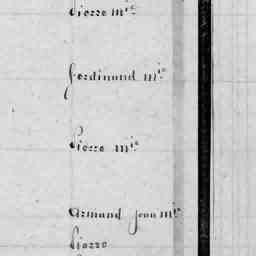 Pierre Mie
ferdinand Mie
Pierre Mie
Armand jean Mie
Pierre